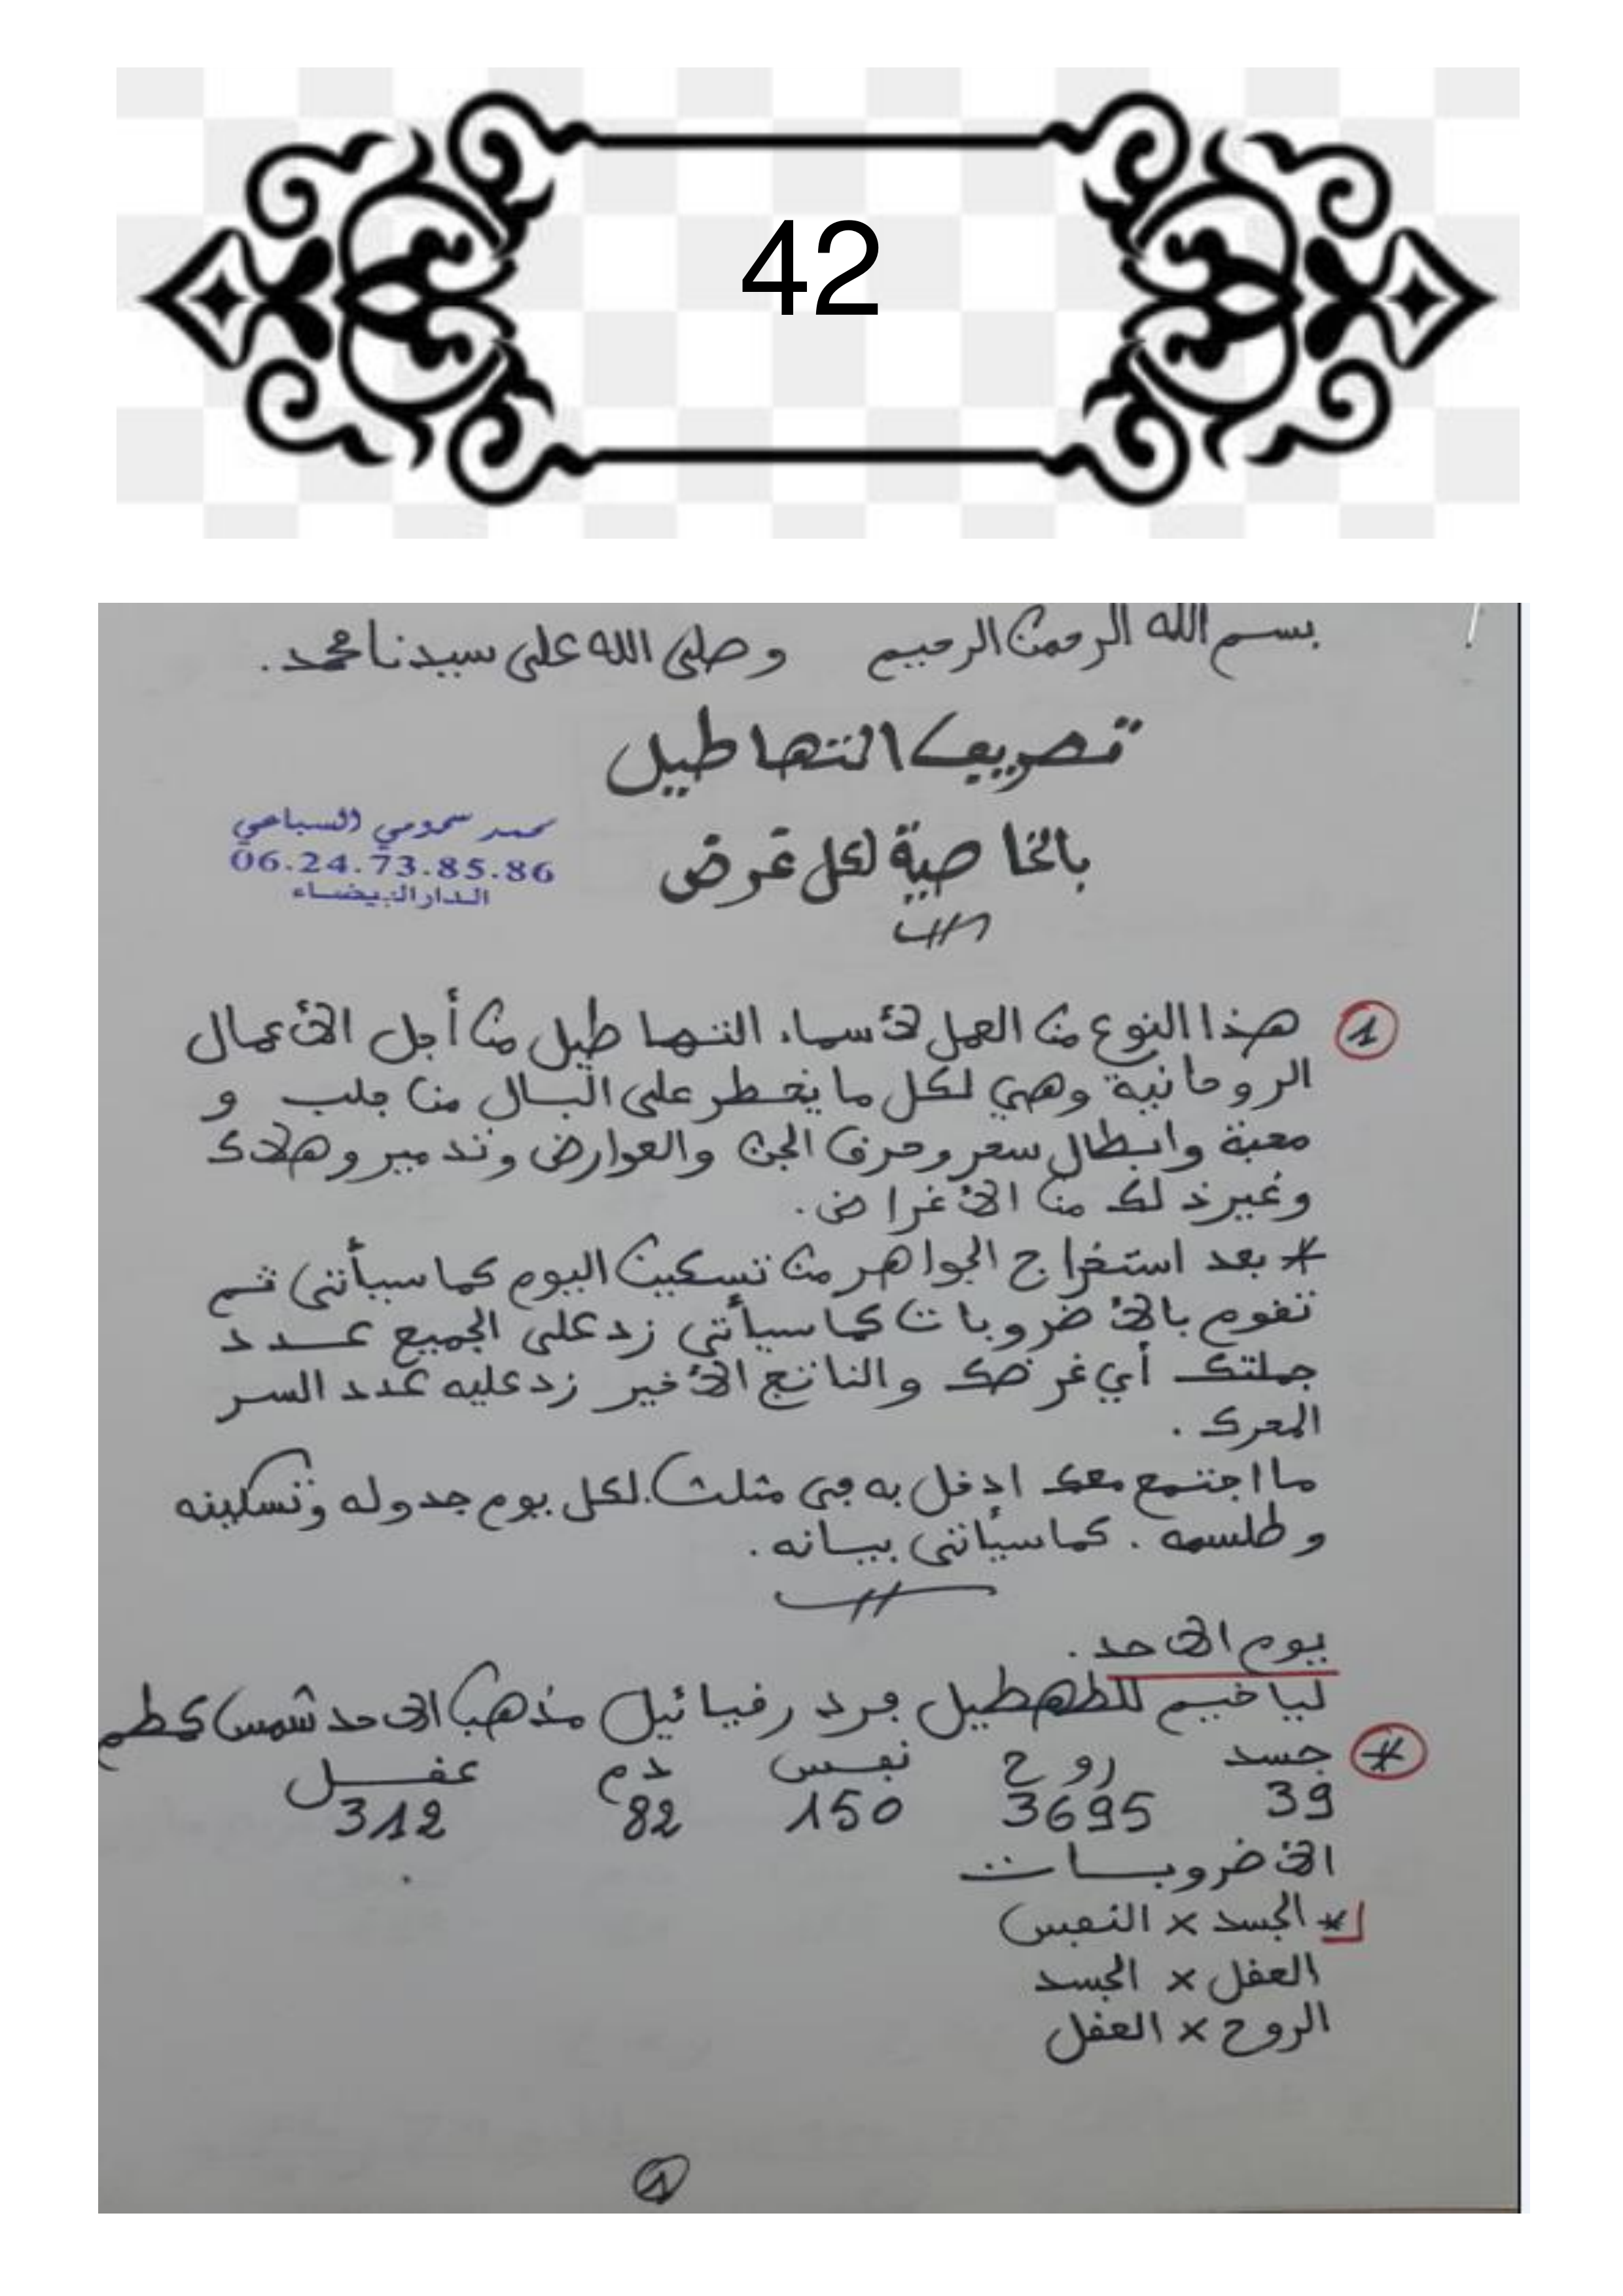 42
بسم الله الرحمن الرحيم وصلى الله على سيدنا محمد.
تصريف التهاطيل
بالخاصية لكل غرض
محمد سحمومي السباعي
06.24.73.85.86
الدار البيضاء
1 هذا النوع من العمل لأسماء التهاطيل من أجل الأعمال
الروحانية وهي لكل ما يخطر على البال من جلب و
محبة وابطال سحر وحرق الجن والعوارض وتدمير وهلاك
وغير ذلك من الأغراض.
* بعد استخراج الجواهر من تسكين اليوم كما سيأتي ثم
تقوم بالأضروبات كما سيأتي زد على الجميع عدد
جملتك أي غرضك والناتج الأخير زد عليه عدد السر
المحرك.
ما اجتمع معك ادخل به في مثلث. لكل يوم جدوله وتسكينه
وطلسمه. كما سيأتي بيانه.
يوم الأحد.
لياخيم للطهطيل فرد رفيائيل مذهب الأحد شمس كطم
* جسد روح نفس دم عقل
39 3695 150 82 312
الأضروبات
* الجسد × النفس
العقل × الجسد
الروح × العقل
1